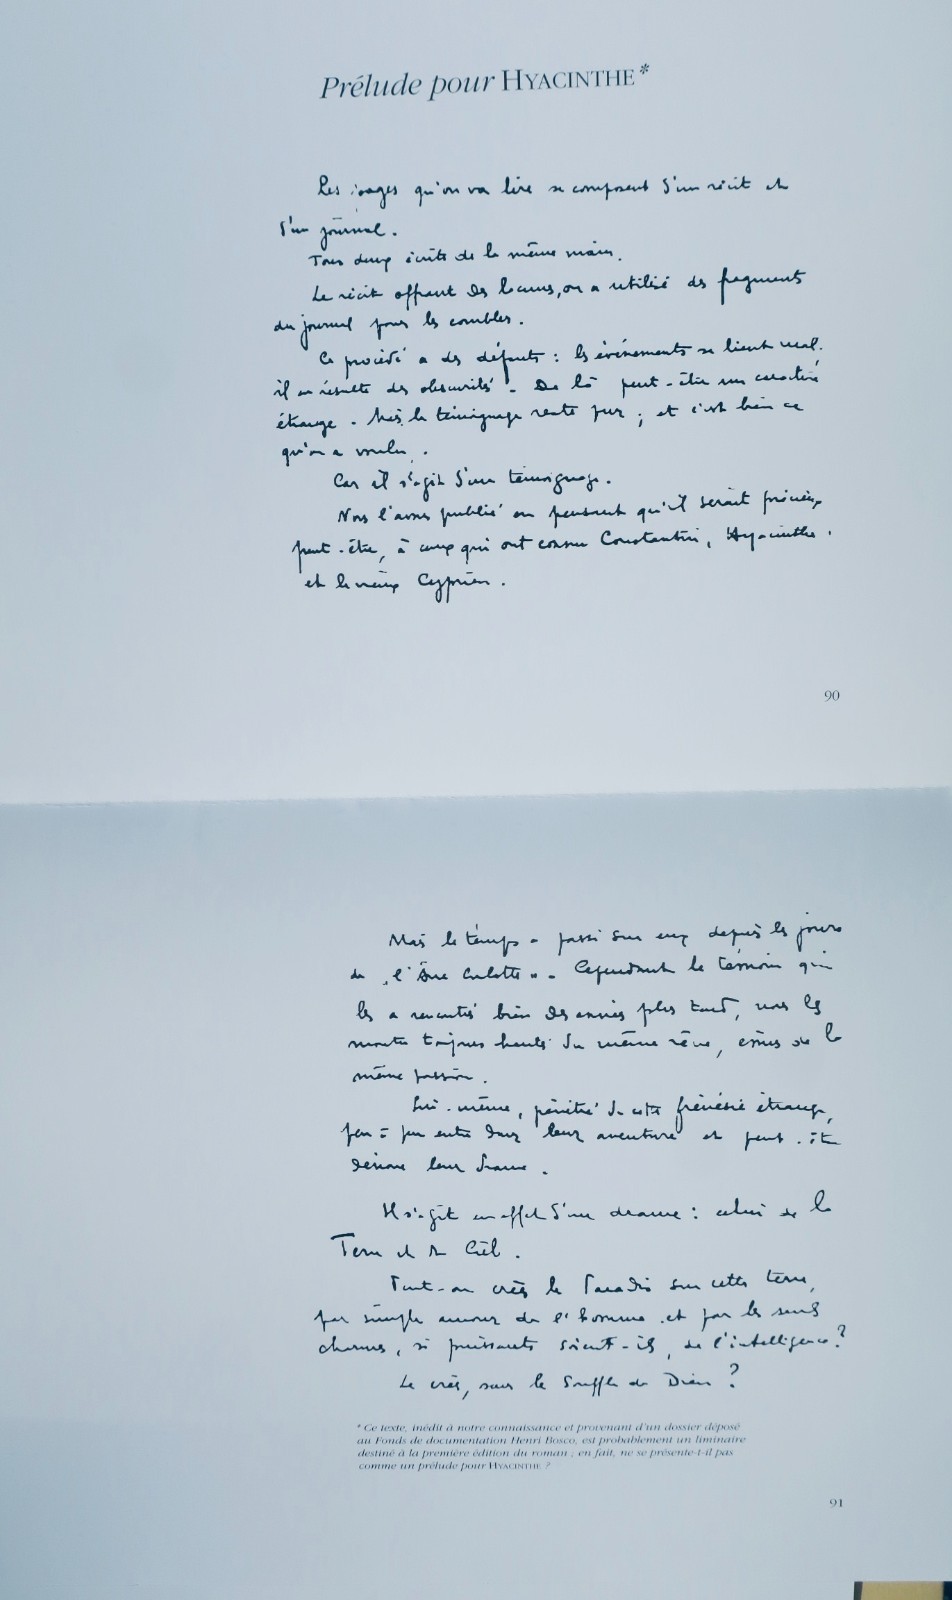 Prélude pour HYACINTHE*
Les pages qu'on va lire se composent d'un récit et
d'un journal.
Tous deux écrits de la même main.
Le récit offrant des lacunes, on a utilisé des fragments
du journal pour les combler.
Ce procédé a des défauts : les événements se lient mal.
il en résulte des obscurités. De là peut-être un caractère
étrange. Mais le témoignage reste pur ; et c'est bien ce
qu'on a voulu.
Car il s'agit d'un témoignage.
Nous l'avons publié en pensant qu'il serait précieux
peut-être, à ceux qui ont connu Constantin, Hyacinthe.
et le vieux Cyprien.
90
Mais le temps a passé sur eux depuis les jours
de "l'Âne Culotte". Cependant le témoin qui
les a rencontrés bien des années plus tard, nous les
montre toujours hantés du même rêve, émus de la
même passion.
Lui-même, pénétré de cette frénésie étrange,
peu à peu entre dans leur aventure et peut-être
dénoue leur drame.
Il s'agit en effet d'un drame : celui de la
Terre et du Ciel.
Peut-on créer le Paradis sur cette terre,
par simple amour de l'homme et par les seuls
charmes, si puissants soient-ils, de l'intelligence ?
Le créer, sans le Souffle de Dieu ?
* Ce texte, inédit à notre connaissance et provenant d'un dossier déposé
au Fonds de documentation Henri Bosco, est probablement un liminaire
destiné à la première édition du roman ; en fait, ne se présente-t-il pas
comme un prélude pour HYACINTHE ?
91